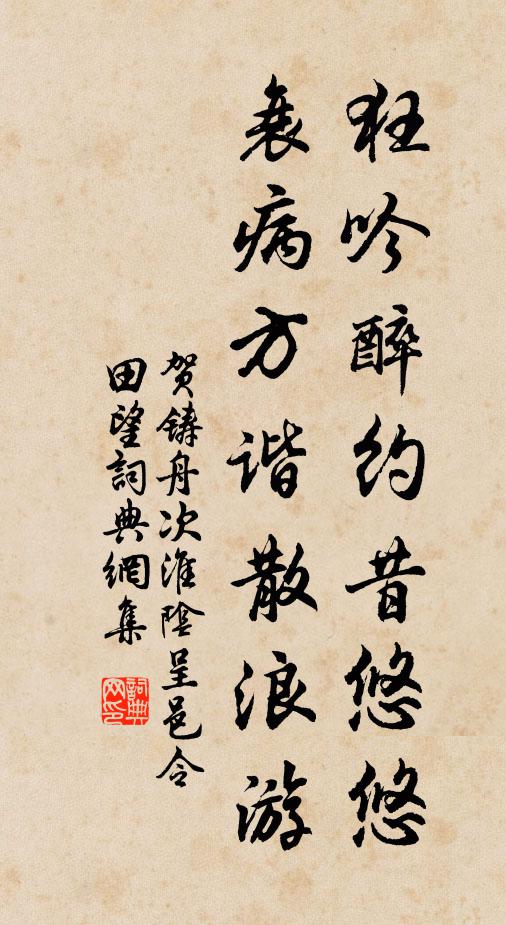 狂吟醉约昔悠悠
衰病方谐散浪游
贺铸舟次淮陰呈邑令田望
詞典網集
詞典网印